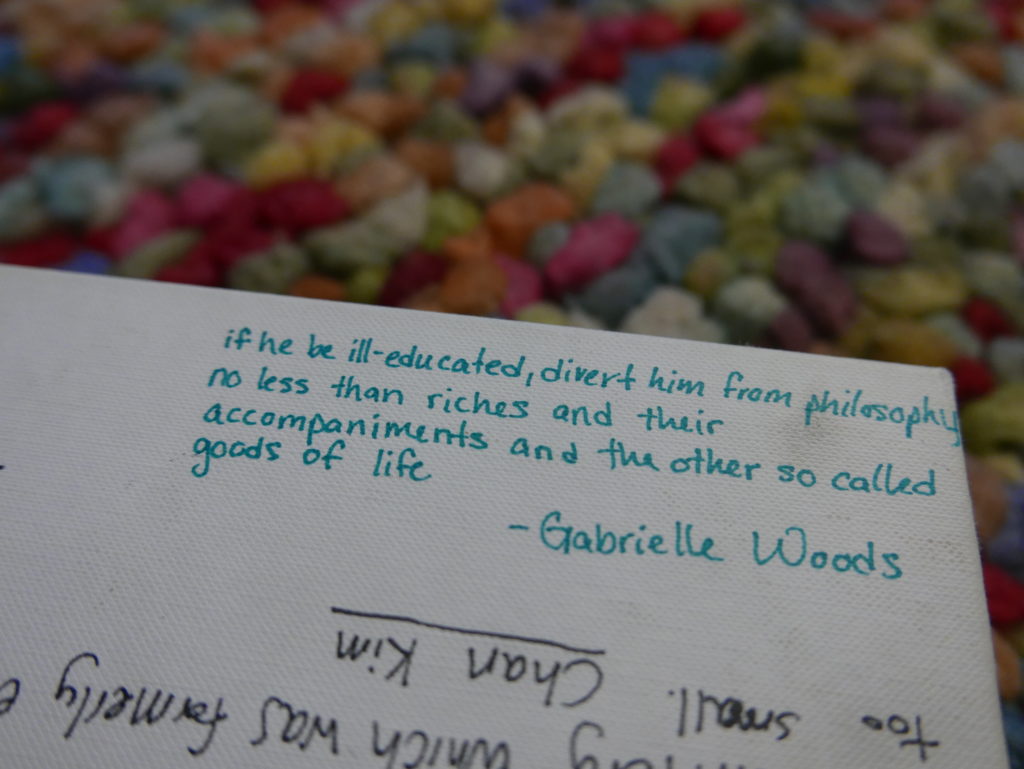 if he be ill-educated, divert him from philosophy
no less than riches and their
accompaniments and the other so called
goods of life
- Gabrielle Woods
which was formerly
too small.
Chan Kim